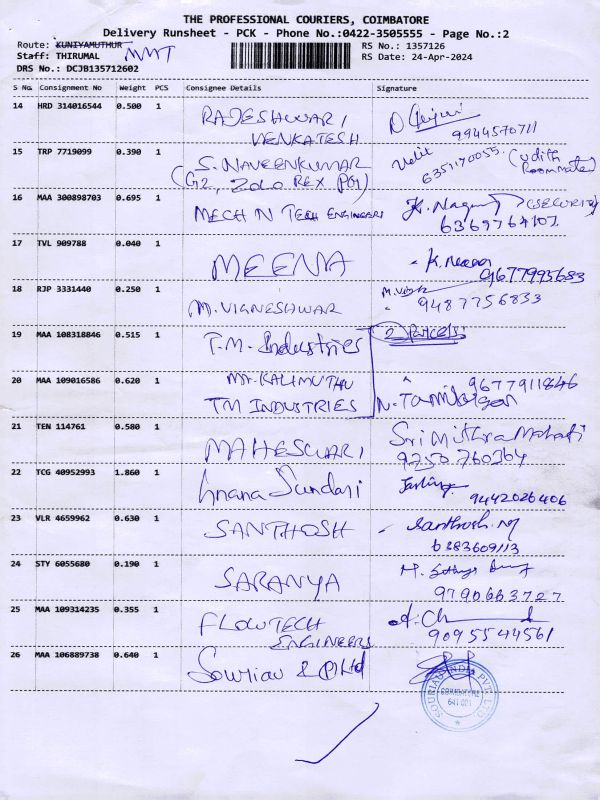 THE PROFESSIONAL COURIERS, COIMBATORE
Delivery Runsheet - PCK - Phone No.:0422-3505555 - Page No.:2
Route: KUNIYAMUTHUR MMT RS No.: 1357126
Staff: THIRUMAL RS Date: 24-Apr-2024
DRS No.: DCJB135712602
S No. Consignment No Weight PCS Consignee Details Signature
14 HRD 314016544 0.500 1 RAJESHWARI
VENKATESH 9944570711
15 TRP 7719099 0.390 1 S. NAVEENKUMAR 6351170055 (Udith
(G2, ZOLO REX PG) Roommate)
16 MAA 300898703 0.695 1 MECH N TECH ENGINEERS (SECURITY)
17 TVL 909788 0.040 1 MEENA
9677995683
18 RJP 3331440 0.250 1 M. VIGNESHWAR 9487756833
19 MAA 108318846 0.515 1 T.M. Industries 2 Parcels
20 MAA 109016586 0.620 1 Mr. KALIMUTHU 9677911846
TM INDUSTRIES
21 TEN 114761 0.580 1 MAHESWARI
9750760364
22 TCG 40952993 1.860 1 Gnana Sundari 9442026406
23 VLR 4659962 0.630 1 SANTHOSH Santhosh
6383609113
24 STY 6055680 0.190 1 SARANYA
9790663727
25 MAA 109314235 0.355 1 FLOWTECH
ENGINEERS 9095544561
26 MAA 106889738 0.640 1 Souriau P Ltd
SOURIAU INDIA PVT. LTD.
COIMBATORE
641 021